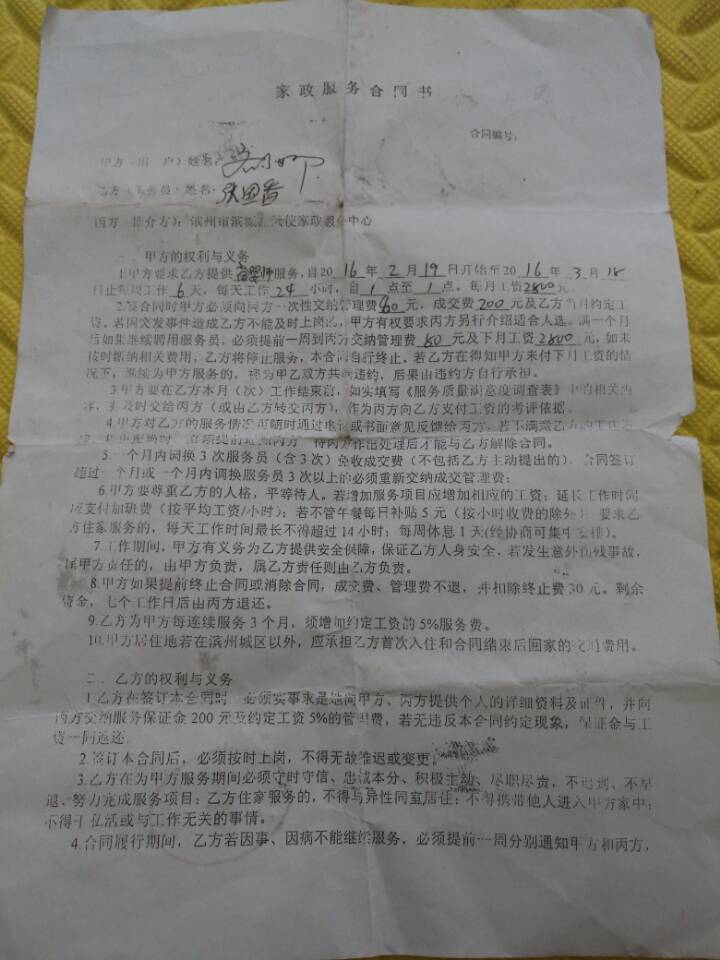 家政服务合同书
合同编号:
甲方(用户)姓名:
乙方(服务员)姓名:
丙方(推介方):滨州市滨城 家政服务中心
一、甲方的权利与义务
1.甲方要求乙方提供育婴师服务,自2016年2月19日开始至2016年3月18
日止每周工作6天,每天工作24小时,自1点至1点。每月工资2800元。
2.签合同时甲方必须向丙方一次性交纳管理费80元,成交费200元及乙方当月约定工
资。若因突发事件造成乙方不能及时上岗的,甲方有权要求丙方另行介绍适合人选。满一个月
后如果继续聘用服务员,必须提前一周到丙方交纳管理费80元及下月工资2800元,如未
按时缴纳相关费用,乙方将停止服务,本合同自行终止。若乙方在得知甲方未付下月工资的情
况下,继续为甲方服务的,视为甲乙双方共同违约,后果由违约方自行承担。
3.甲方要在乙方本月(次)工作结束前,如实填写《服务质量满意度调查表》中的相关内
容,并及时交给丙方(或由乙方转交丙方),作为丙方向乙方支付工资的考评依据。
4.甲方对乙方的服务情况可随时通过电话或书面意见反馈给丙方。若不满意乙方的工作
必须提前通知丙方,待丙方作出处理后才能与乙方解除合同。
5.一个月内调换3次服务员(含3次)免收成交费(不包括乙方主动提出的)。合同签订
超过一个月或一个月内调换服务员3次以上的必须重新交纳成交管理费;
6.甲方要尊重乙方的人格,平等待人。若增加服务项目应增加相应的工资;延长工作时间
应支付加班费(按平均工资/小时);若不管午餐每日补贴5元(按小时收费的除外);要求乙
方住家服务的,每天工作时间最长不得超过14小时;每周休息1天(经协商可集中安排)。
7.工作期间,甲方有义务为乙方提供安全保障,保证乙方人身安全,若发生意外伤残事故,
属甲方责任的,由甲方负责,属乙方责任则由乙方负责。
8.甲方如果提前终止合同或消除合同,成交费、管理费不退,并扣除终止费30元。剩余
资金,七个工作日后由丙方退还。
9.乙方为甲方每连续服务3个月,须增加约定工资的5%服务费。
10.甲方居住地若在滨州城区以外,应承担乙方首次入住和合同结束后回家的交通费用。
二、乙方的权利与义务
1.乙方在签订本合同时,必须实事求是地向甲方、丙方提供个人的详细资料及证件,并向
丙方交纳服务保证金200元及约定工资5%的管理费,若无违反本合同约定现象,保证金与工
资一同返还。
2.签订本合同后,必须按时上岗,不得无故推迟或变更。
3.乙方在为甲方服务期间必须守时守信、忠诚本分、积极主动、尽职尽责,不迟到、不早
退、努力完成服务项目;乙方住家服务的,不得与异性同室居住;不得携带他人进入甲方家中;
不得干私活或与工作无关的事情。
4.合同履行期间,乙方若因事、因病不能继续服务,必须提前一周分别通知甲方和丙方,